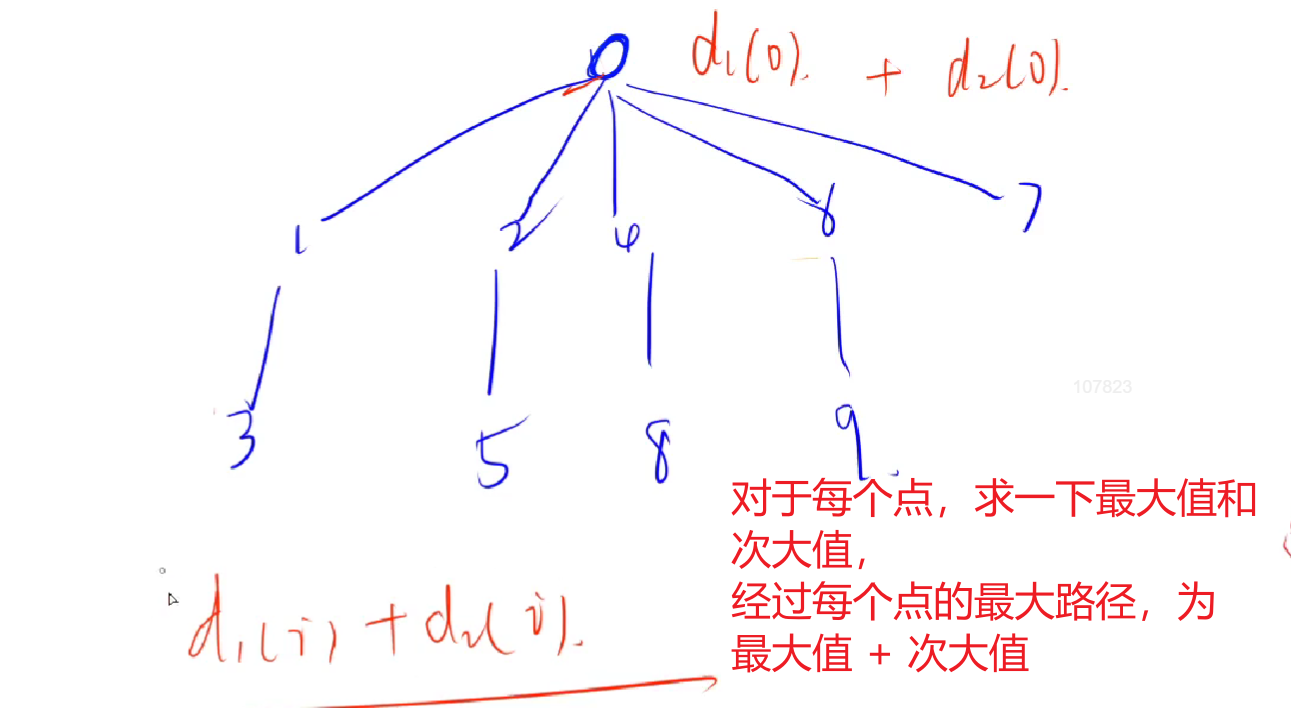 0 d₁(0). + d₂(0).
1 2 4 6 7
3 5 8 9
107823
对于每个点，求一下最大值和
次大值，
经过每个点的最大路径，为
最大值 + 次大值
d₁(i) + d₂(i).